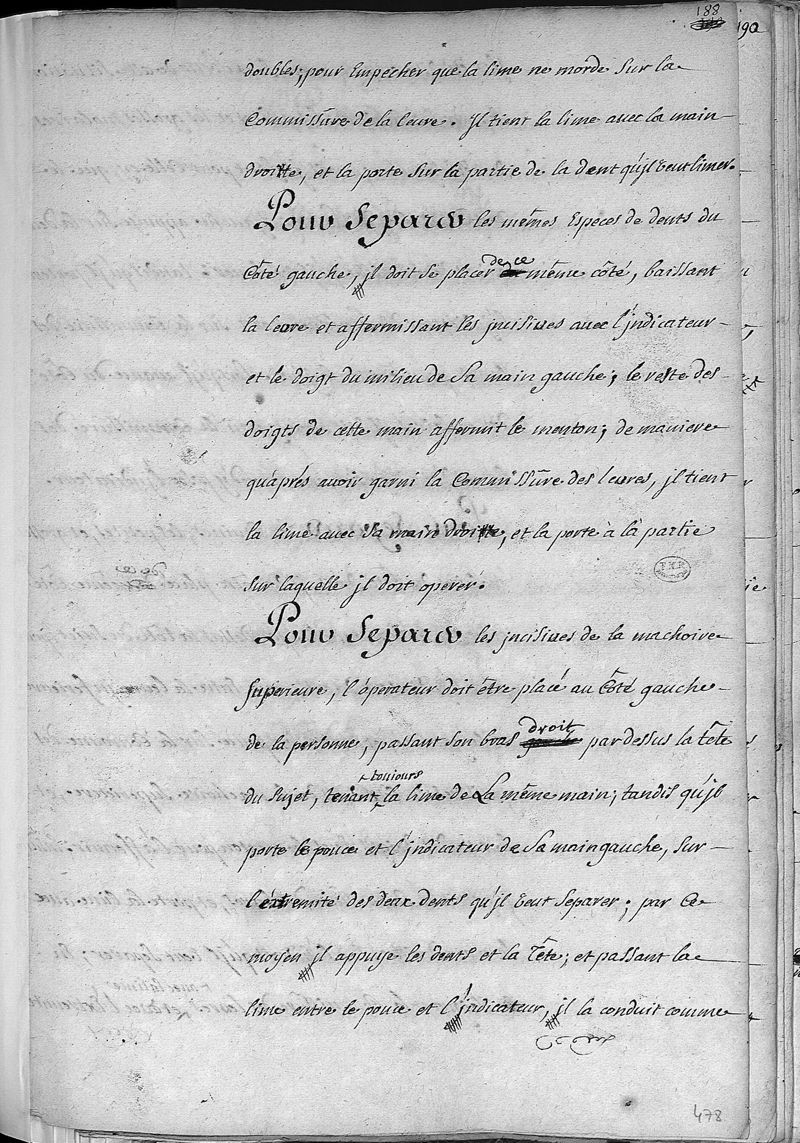 188
190
doubles; pour Empècher que la lime ne morde Sur la
Commissure de la leure. Il tient la lime auec la main
droitte, et la porte Sur la partie de la dent qu'jl veut limer.
Pour Separer les mêmes Especes de dents du
Côté gauche, jl doit se placer de ce même côté, baissant
la levre et affermissant les jncisiues auec l'jndicateur
et le doigt du milieu de Sa main gauche; le reste des
doigts de cette main affermit le menton; de maniere
qu'aprés auoir garni la Commissure des leures, jl tient
la lime auec Sa main droitte, et la porte à la partie
Sur laquelle jl doit operer.
Pour Separer les jncisiues de la machoire
Superieure, l'operateur doit être placé au Côté gauche
de la personne, passant son bras droit par dessus la tête
du Sujet, tenant toujours la lime de La même main; tandis qu'jl
porte le pouce et l'jndicateur de Sa main gauche, Sur
l'extremité des deux dents qu'jl veut Separer; par Ce
moyen jl appuye les dents et la Tête; et passant la
lime entre le pouce et l'jndicateur, jl la conduit comme
478